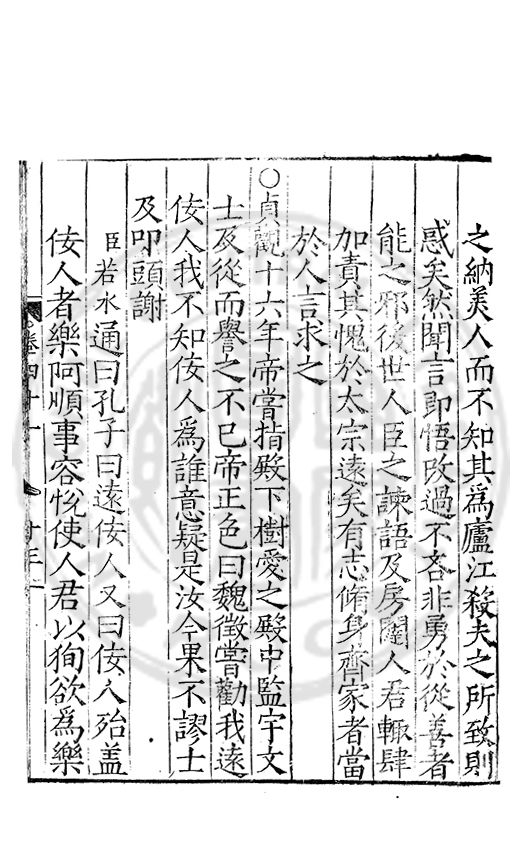 之納美人而不知其爲廬江殺夫之所致則
惑矣然聞言即悟改過不吝非勇於從善者
能之邪後世人臣之諫語及房闥人君輙肆
加責其愧於太宗遠矣有志脩身齊家者當
於人言求之
○貞觀十六年帝嘗指殿下樹愛之殿中監宇文
士及從而譽之不已帝正色曰魏徵嘗勸我遠
佞人我不知佞人爲誰意疑是汝今果不謬士
及叩頭謝
臣若水通曰孔子曰遠佞人又曰佞人殆盖
佞人者樂阿順事容悅使人君以狥欲爲樂
卷四十一